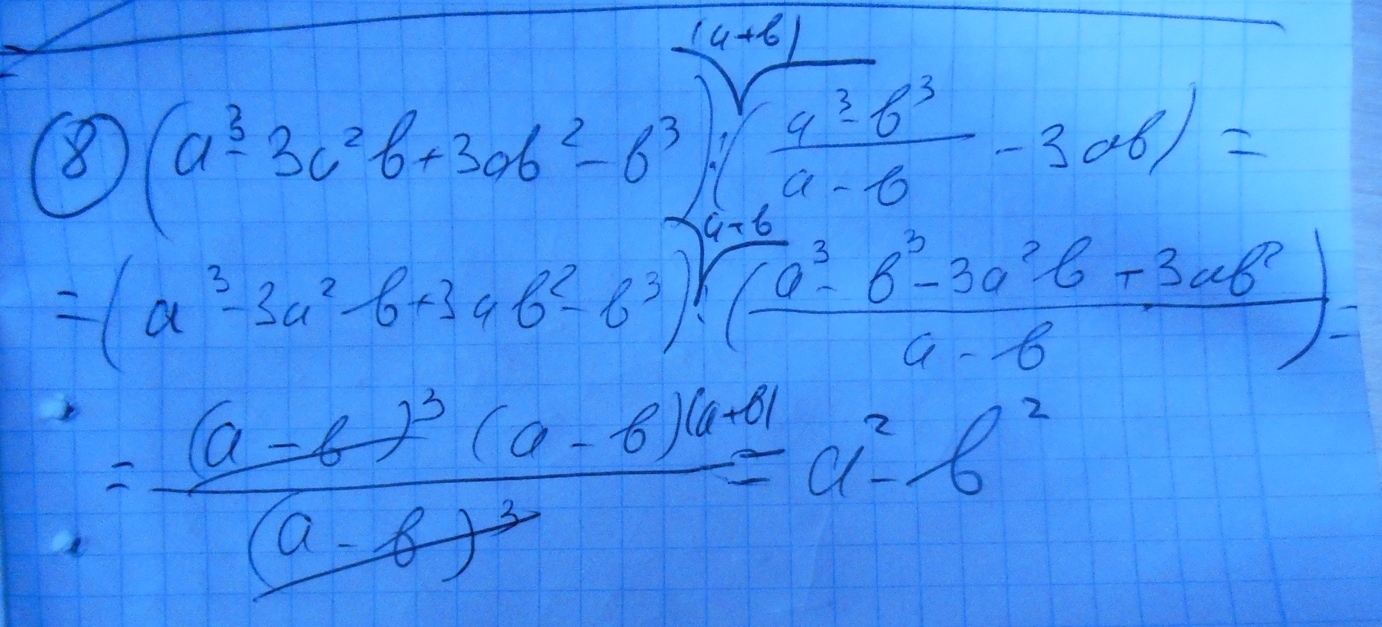 (a+b)
⑧ (a³-3a²b+3ab²-b³):(a³-b³/a-b -3ab)=
a+b
=(a³-3a²b+3ab²-b³):(a³-b³-3a²b+3ab²/a-b)=
=(a-b)³(a-b)(a+b)/(a-b)³=a²-b²